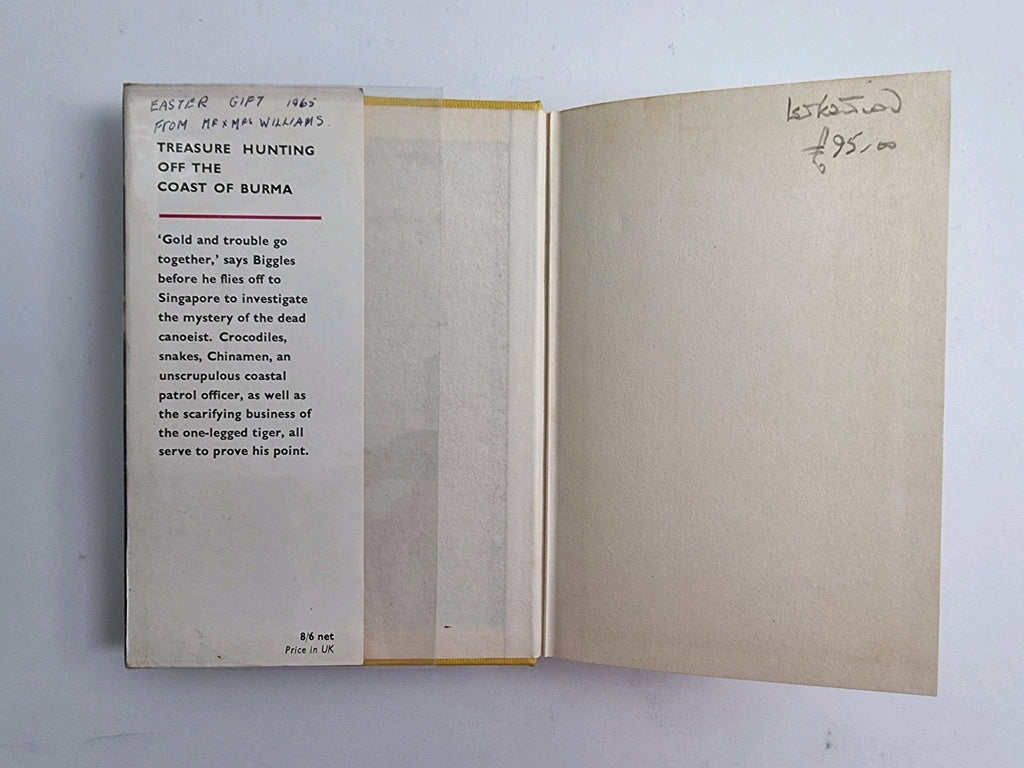 EASTER GIFT 1965
FROM MR & MRS WILLIAMS.
TREASURE HUNTING
OFF THE
COAST OF BURMA
‘Gold and trouble go
together,’ says Biggles
before he flies off to
Singapore to investigate
the mystery of the dead
canoeist. Crocodiles,
snakes, Chinamen, an
unscrupulous coastal
patrol officer, as well as
the scarifying business of
the one-legged tiger, all
serve to prove his point.
8/6 net
Price in UK
1st edition
£95.00